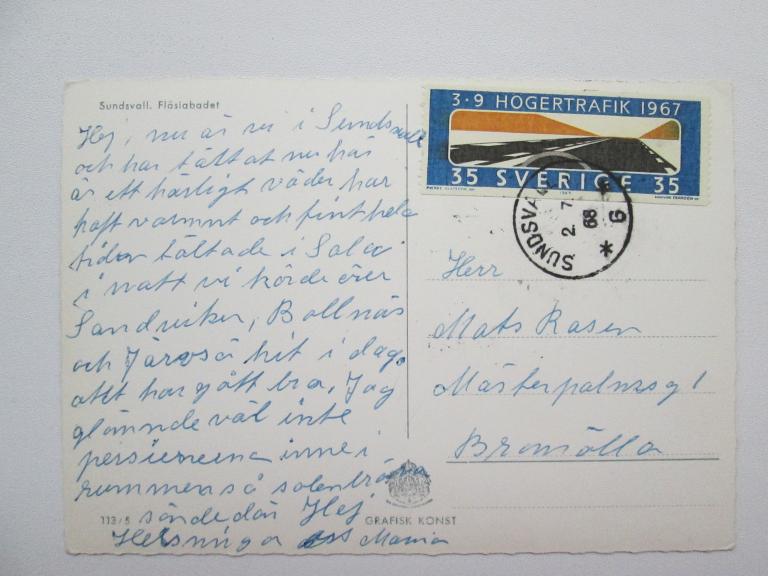 Sundsvall. Fläsiabadet
Hej, nu är vi i Sundsvall
och har tält at nu här
är ett härligt väder har
haft varmnt och fint hela
tiden tältade i Sala
i natt vi körde över
Sandviken, Bollnäs
och Järvsö hit i dag.
allt har gått bra, Jag
glömnde väl inte
persienerna inne i
rummen så solen
sönde där Hej
Hälsningar Mamma
113/5
GRAFISK KONST
3·9 HÖGERTRAFIK 1967
35 SVERIGE 35
1967
SUNDSVALL 6
2. 7
68
Herr
Mats Rasen
Mästerpalmsg 1
Bromölla